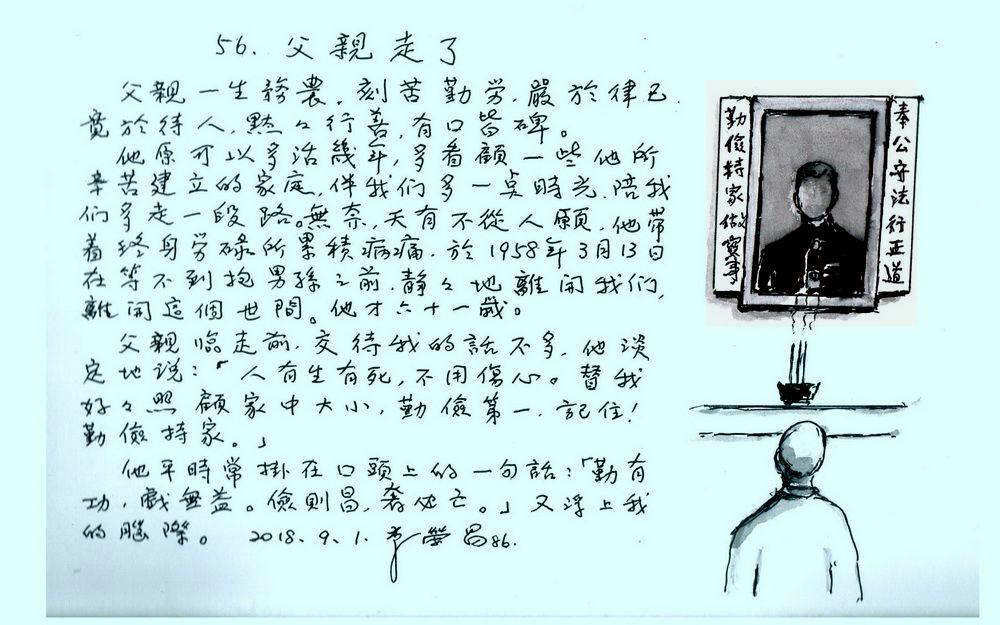 56. 父親走了
父親一生務農，刻苦勤劳，嚴於律己，
寛於待人，黙々行善，有口皆碑。
他原可以多活幾年，多看顧一些他所
辛苦建立的家庭，伴我们多一点時光，陪我
们多走一段路。無奈，天有不從人願，他带
着终身劳碌所累積病痛，於1958年3月13日
在等不到抱男孫之前，静々地離開我们，
離開這個世間。他才六十一歲。
父親临走前，交待我的話不多，他淡
定地说：「人有生有死，不用傷心。替我
好々照顧家中大小，勤儉第一，記住！
勤儉持家。」
他平時常掛在口頭上的一句話：「勤有
功，戲無益。儉則昌，奢必亡。」又浮上我
的腦際。 2018.9.1. 李榮昌86.
奉公守法行正道
勤儉持家做實事